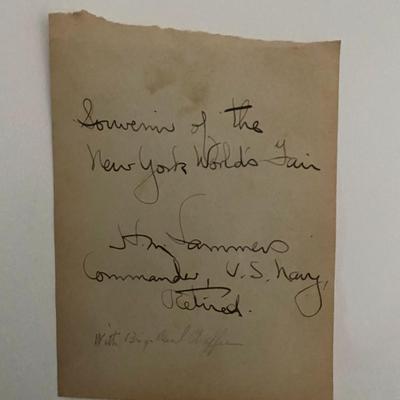 Souvenir of the
New York World's Fair
H. M. Lammers
Commander, U.S. Navy,
Retired.
With